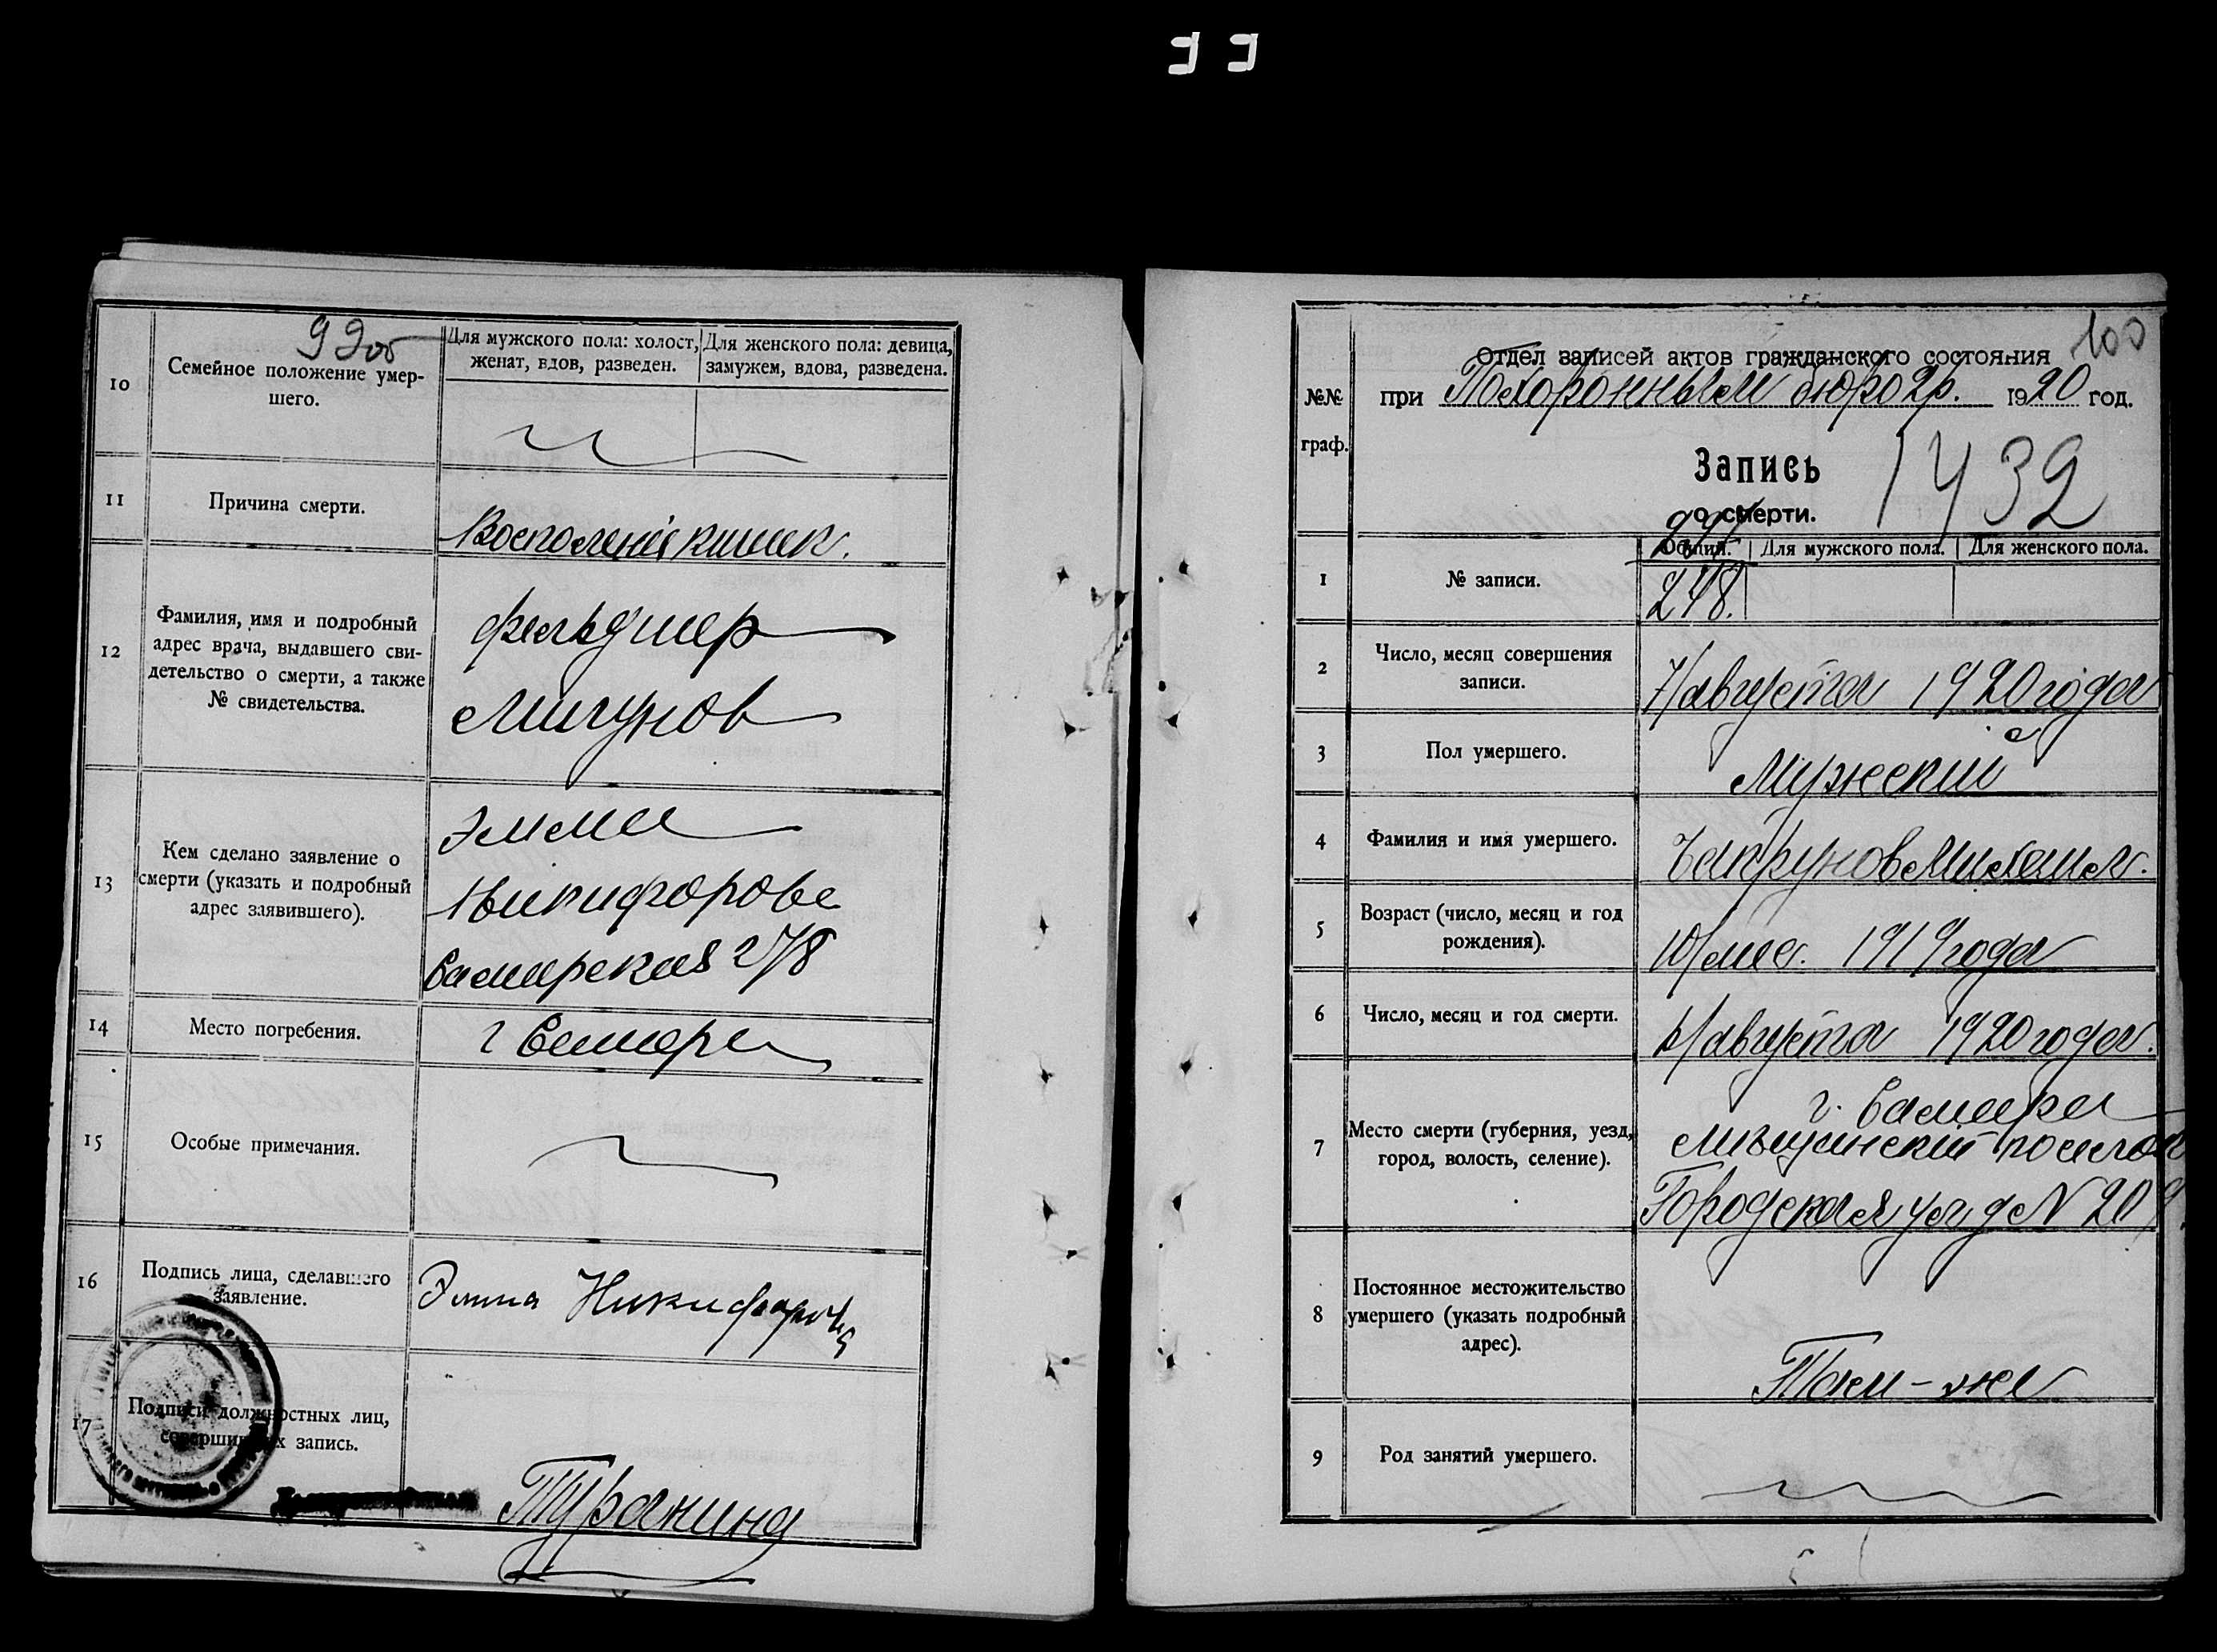 99об
10
Семейное положение умер-
шего.
Для мужского пола: холост,
женат, вдов, разведен.
Для женского пола: девица,
замужем, вдова, разведена.
11
Причина смерти.
Восполение кишек.
12
Фамилия, имя и подробный
адрес врача, выдавшего сви-
детельство о смерти, а также
№ свидетельства.
фельдшер
Мигунов
13
Кем сделано заявление о
смерти (указать и подробный
адрес заявившего).
Эмма
Никифорова
Самарская 278
14
Место погребения.
г Самара
15
Особые примечания.
16
Подпись лица, сделавшего
заявление.
Эмма Никифорова
17
Подписи должностных лиц,
совершивших запись.
100
№№
граф.
Отдел записей актов гражданского состояния
при Похоронным бюро гр. 1920 год.
Запись
о смерти.
1432
Общий.
Для мужского пола.
Для женского пола.
1
№ записи.
248.
2
Число, месяц совершения
записи.
7/августа 1920 года
3
Пол умершего.
Мужский
4
Фамилия и имя умершего.
Михаил.
5
Возраст (число, месяц и год
рождения).
10/мес. 1919 года
6
Число, месяц и год смерти.
6/августа 1920 года.
7
Место смерти (губерния, уезд,
город, волость, селение).
г. Самара
посёлок
Городская ул д N 209.
8
Постоянное местожительство
умершего (указать подробный
адрес).
Там-же
9
Род занятий умершего.